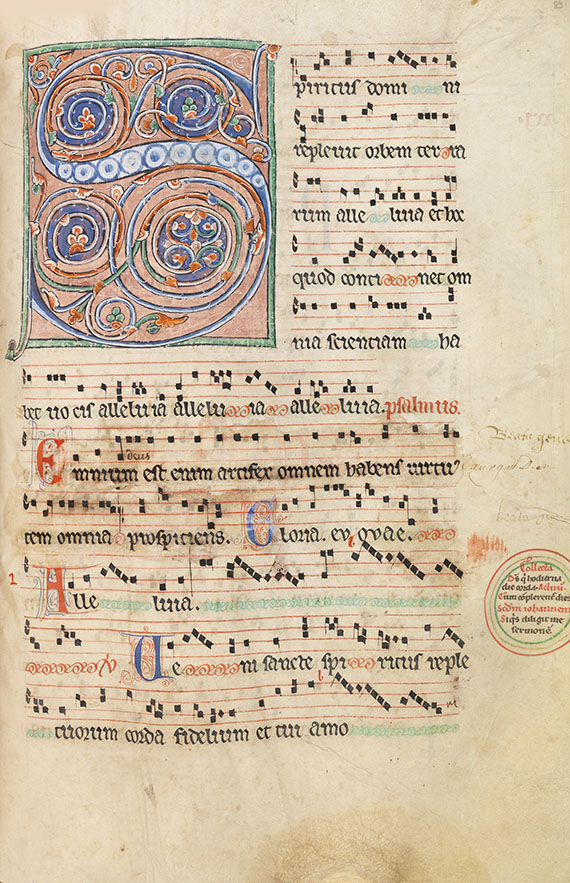 Spiritus domi ni
repleuit orbem terra
rum alle luia et hoc
quod conti net om
nia scientiam ha
bet uo cis alleluia alleluia alle luia. psalmus.
deus
Omnium est enim artifex omnem habens uirtu
tem omnia prospiciens. Gloria. eu quae.
Alle luia.
Ve ni sancte spi ritus reple
tuorum corda fidelium et tui amo
Collecta
Ds q hodierna
die corda. Actuu
Cum cōplerent dies
Scdm iohannem
Siqs diligit me
sermonē.